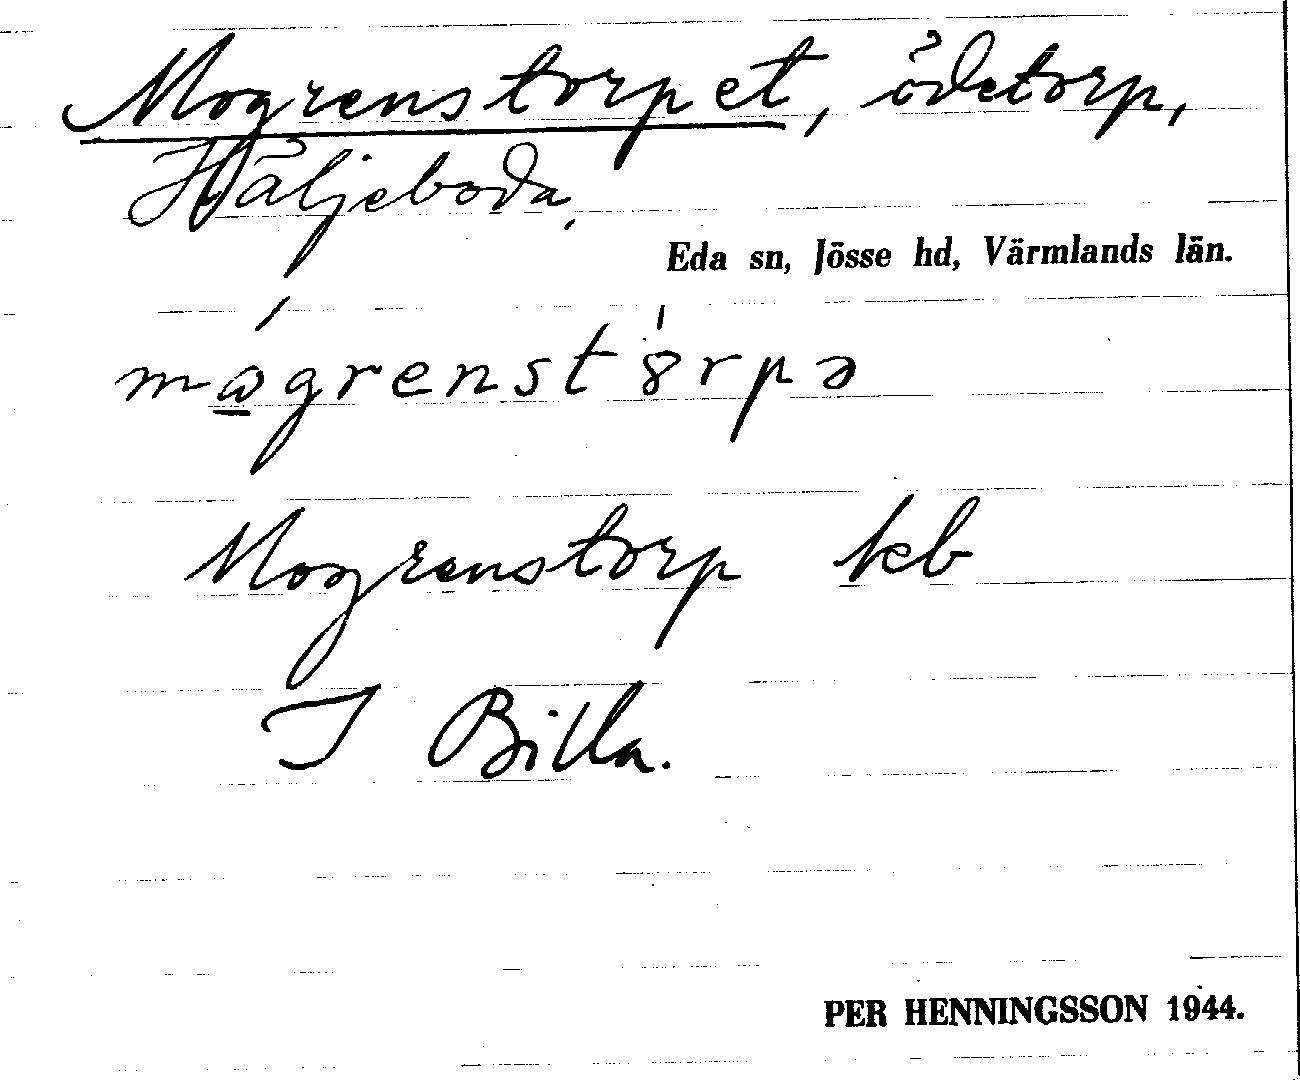 Mogrenstorpet, ödetorp,
Häljeboda,
Eda sn, Jösse hd, Värmlands län.
mɷ̲́grenst8̍rpə
Mogrenstorp kb
I Billa.
PER HENNINGSSON 1944.